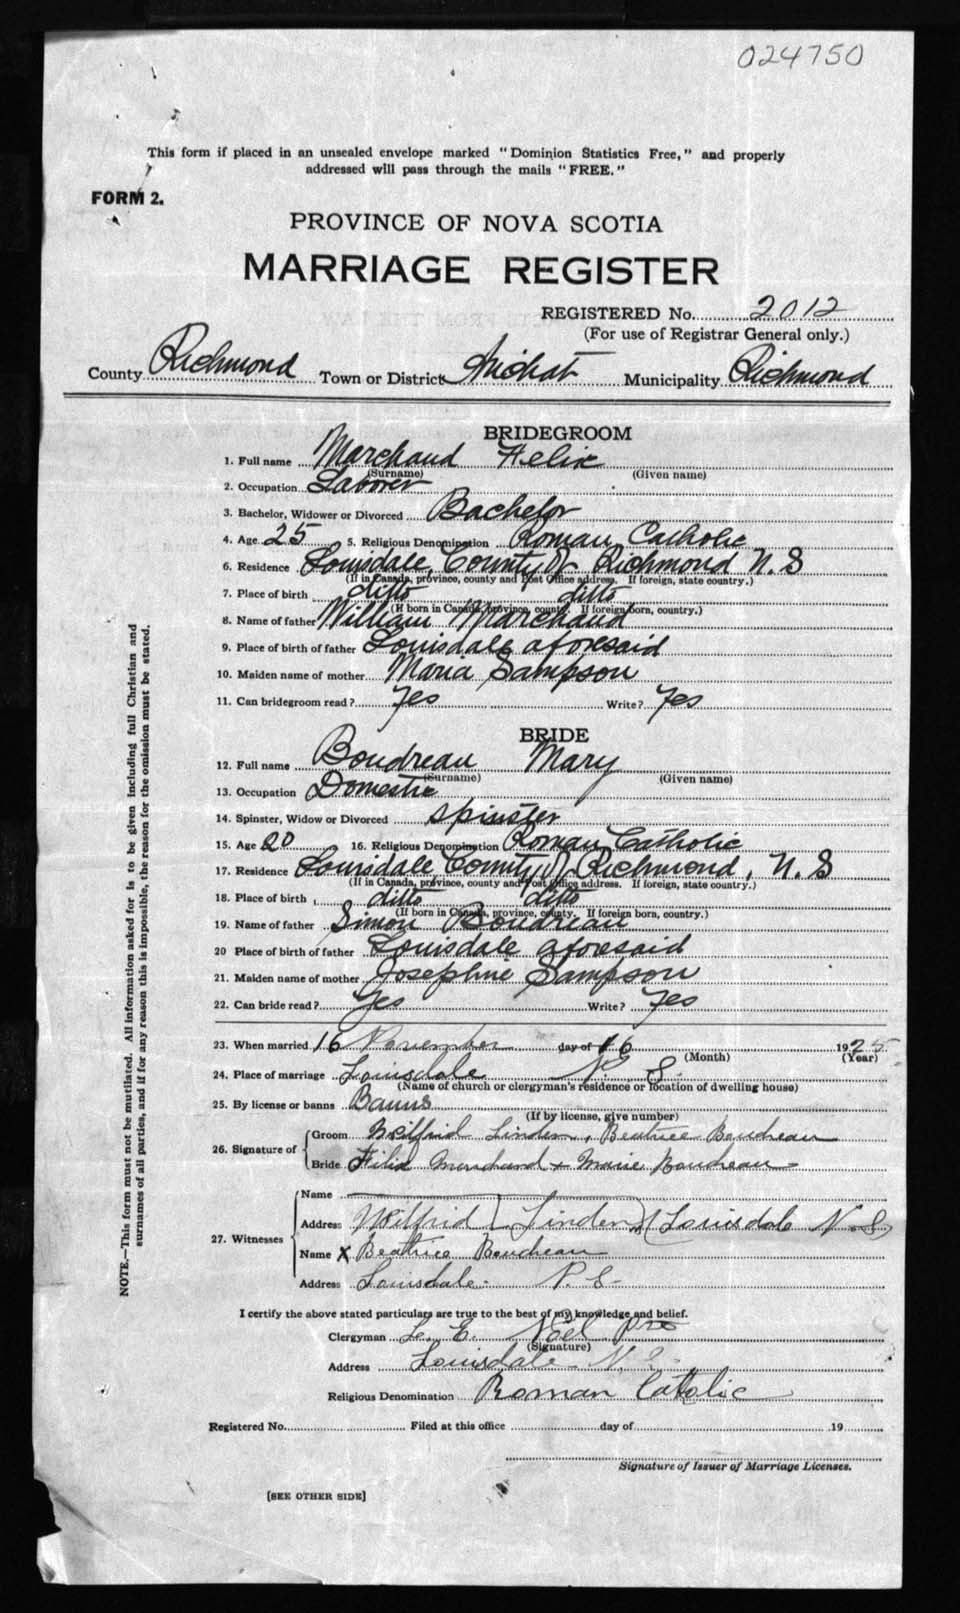 024750
This form if placed in an unsealed envelope marked "Dominion Statistics Free," and properly
addressed will pass through the mails "FREE."
FORM 2.
PROVINCE OF NOVA SCOTIA
MARRIAGE REGISTER
REGISTERED No. 2012
(For use of Registrar General only.)
County Richmond Town or District Arichat Municipality Richmond
BRIDEGROOM
1. Full name Marchand Felix
(Surname) (Given name)
2. Occupation Laborer
3. Bachelor, Widower or Divorced Bachelor
4. Age 25 5. Religious Denomination Roman Catholic
6. Residence Louisdale, County of Richmond N.S
(If in Canada, province, county and Post Office address. If foreign, state country.)
7. Place of birth ditto ditto
(If born in Canada, province, county. If foreign born, country.)
8. Name of father William Marchand
9. Place of birth of father Louisdale aforesaid
10. Maiden name of mother Maria Sampson
11. Can bridegroom read? Yes Write? Yes
BRIDE
12. Full name Boudreau Mary
(Surname) (Given name)
13. Occupation Domestic
14. Spinster, Widow or Divorced spinster
15. Age 20 16. Religious Denomination Roman Catholic
17. Residence Louisdale County of Richmond, N.S
(If in Canada, province, county and Post Office address. If foreign, state country.)
18. Place of birth ditto ditto
(If born in Canada, province, county. If foreign born, country.)
19. Name of father Simon Boudreau
20 Place of birth of father Louisdale aforesaid
21. Maiden name of mother Josephine Sampson
22. Can bride read? Yes Write? Yes
23. When married 16 November day of 16 1925
(Month) (Year)
24. Place of marriage Louisdale N. S.
(Name of church or clergyman's residence or location of dwelling house)
25. By license or banns Banns
(If by license, give number)
26. Signature of Groom Wilfrid Linden, Beatrice Boudreau
Bride Filix Marchand + Marie Boudreau
27. Witnesses Name
Address Wilfrid Linden (Louisdale N.S)
Name X Beatrice Boudreau
Address Louisdale. N.S.
I certify the above stated particulars are true to the best of my knowledge and belief.
Clergyman L. E. Noel
(Signature)
Address Louisdale N.S.
Religious Denomination Roman Catolic
Registered No. Filed at this office day of 19
Signature of Issuer of Marriage Licenses.
[SEE OTHER SIDE]
NOTE.—This form must not be mutilated. All information asked for is to be given including full Christian and
surnames of all parties, and if for any reason this is impossible, the reason for the omission must be stated.